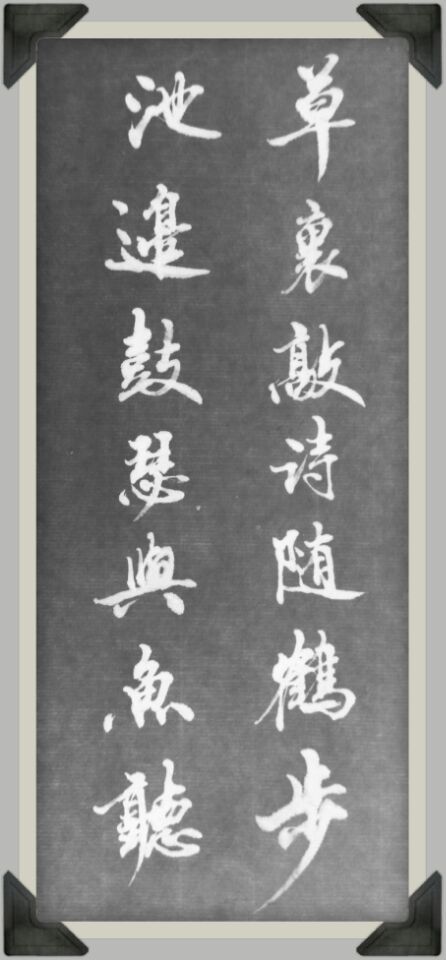 草裏敲诗随鶴步
池邊鼓瑟與魚聽